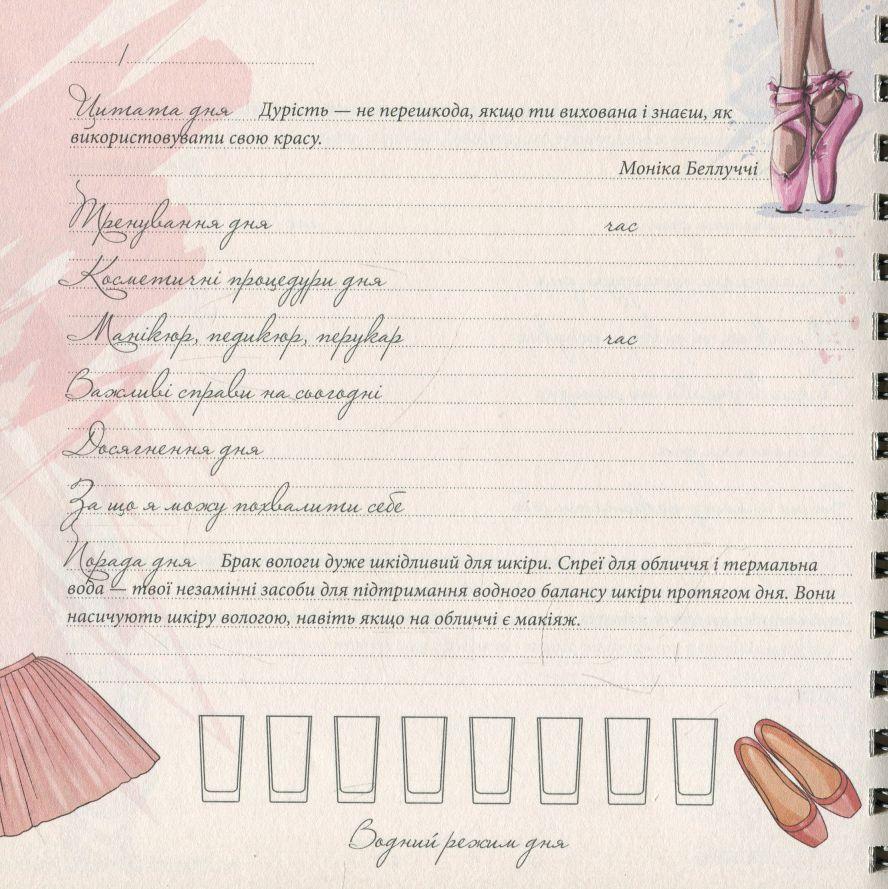 /
Цитата дня Дурість — не перешкода, якщо ти вихована і знаєш, як
використовувати свою красу.
Моніка Беллуччі
Тренування дня час
Косметичні процедури дня
Манікюр, педикюр, перукар час
Важливі справи на сьогодні
Досягнення дня
За що я можу похвалити себе
Порада дня Брак вологи дуже шкідливий для шкіри. Спреї для обличчя і термальна
вода — твої незамінні засоби для підтримання водного балансу шкіри протягом дня. Вони
насичують шкіру вологою, навіть якщо на обличчі є макіяж.
Водний режим дня